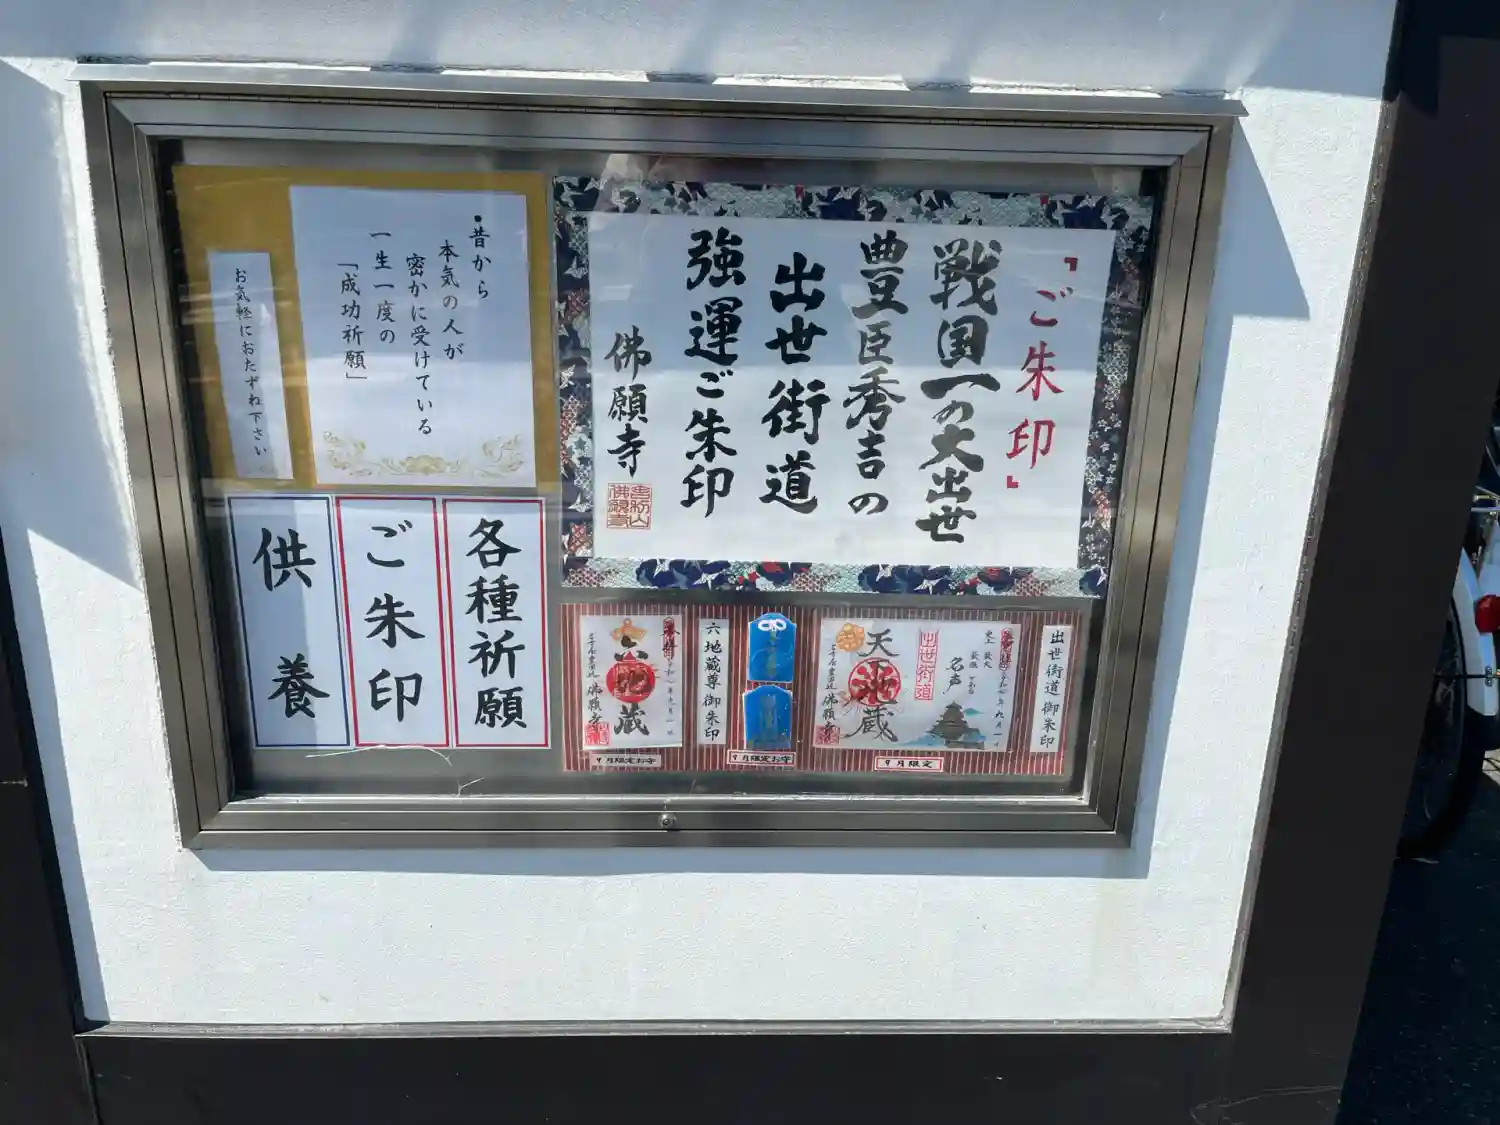 「ご朱印」
戦国一の大出世
豊臣秀吉の
出世街道
強運ご朱印
佛願寺
・昔から
本気の人が
密かに受けている
一生一度の
「成功祈願」
お気軽におたずね下さい
各種祈願
ご朱印
供養
出世街道 御朱印
出世街道
天下
地蔵
名声
佛願寺
9月限定
9月限定お守
六地蔵尊御朱印
六地蔵
佛願寺
9月限定お守